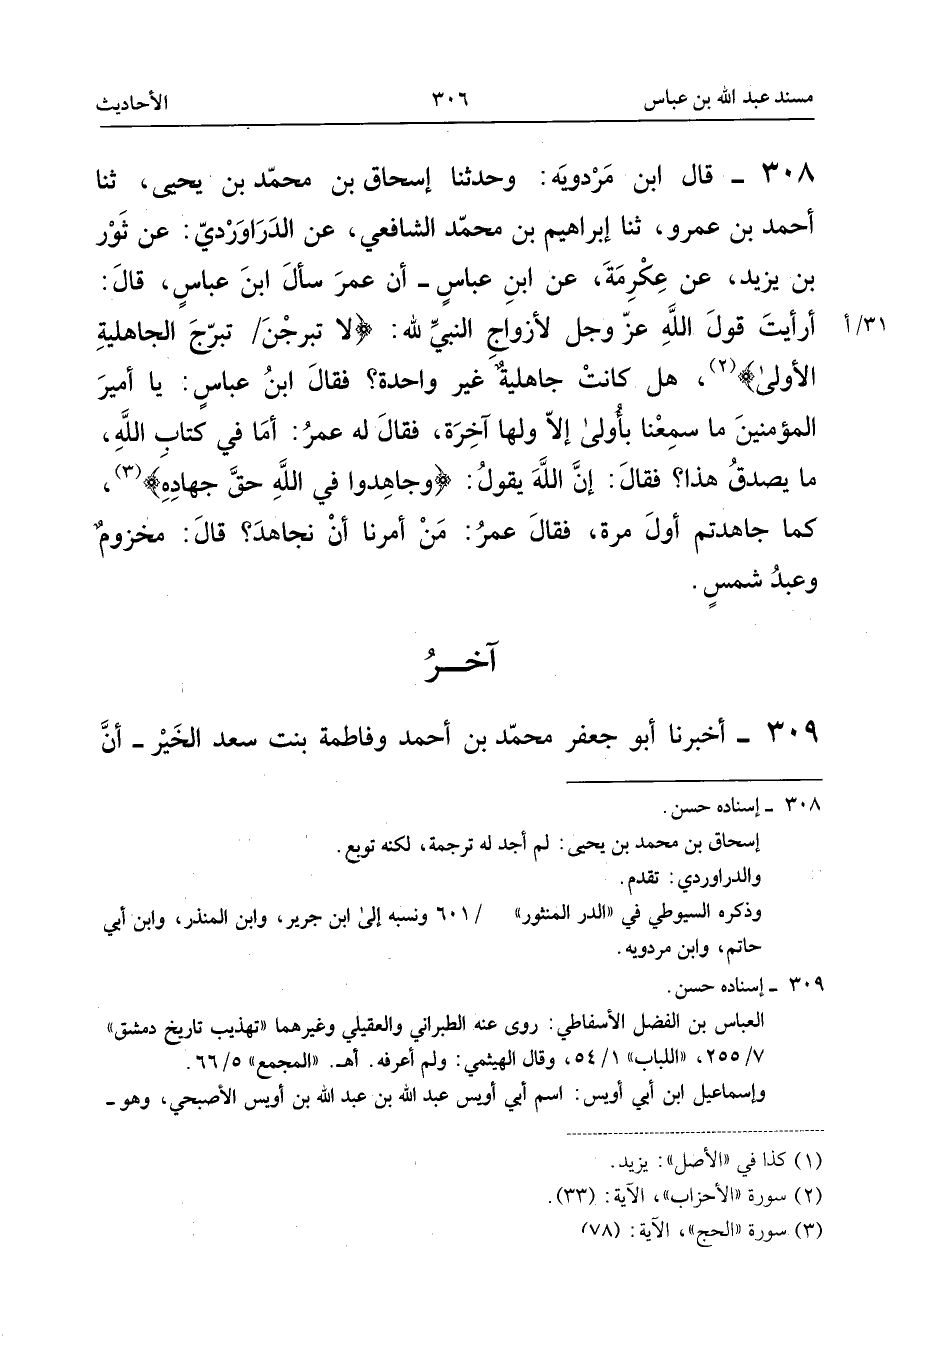 مسند عبد الله بن عباس ٣٠٦ الأحاديث
٣٠٨ ـ قال ابن مَرْدويَه: وحدثنا إسحاق بن محمّد بن يحيى، ثنا
أحمد بن عمرو، ثنا إبراهيم بن محمّد الشافعي، عن الدَرَاوَرْديّ: عن ثَوْر
بن يزيد، عن عِكْرِمَةَ، عن ابنِ عباسٍ ـ أن عمرَ سألَ ابنَ عباسٍ، قالَ:
٣١/أ أرأيتَ قولَ اللَّهِ عزّ وجل لأزواجِ النبيِّ لله: ﴿لا تبرجْنَ/ تبرّجَ الجاهليةِ
الأولىٰ﴾(٢)، هل كانتْ جاهليةٌ غير واحدة؟ فقالَ ابنُ عباسٍ: يا أميرَ
المؤمنينَ ما سمِعْنا بأُولىٰ إلاّ ولها آخِرَة، فقالَ له عمرُ: أمَا في كتابِ اللَّهِ،
ما يصدقُ هذا؟ فقالَ: إنَّ اللَّهَ يقولُ: ﴿وجاهِدوا في اللَّهِ حقَّ جهادِهِ﴾(٣)،
كما جاهدتم أولَ مرة، فقالَ عمرُ: مَنْ أمرنا أنْ نجاهدَ؟ قالَ: مخزومٌ
وعبدُ شمسٍ.
آخــرُ
٣٠٩ ـ أخبرنا أبو جعفر محمّد بن أحمد وفاطمة بنت سعد الخَيْر ـ أنَّ
٣٠٨ ـ إسناده حسن.
إسحاق بن محمد بن يحيى: لم أجد له ترجمة، لكنه توبع.
والدراوردي: تقدم.
وذكره السيوطي في «الدر المنثور» /٦٠١ ونسبه إلىٰ ابن جرير، وابن المنذر، وابن أبي
حاتم، وابن مردويه.
٣٠٩ ـ إسناده حسن.
العباس بن الفضل الأسفاطي: روى عنه الطبراني والعقيلي وغيرهما «تهذيب تاريخ دمشق»
٧/٢٥٥، «اللباب» ١/٥٤، وقال الهيثمي: ولم أعرفه. أهـ. «المجمع» ٥/٦٦.
وإسماعيل ابن أبي أويس: اسم أبي أويس عبد الله بن عبد الله بن أويس الأصبحي، وهو ـ
(١) كذا في «الأصل»: يزيد.
(٢) سورة «الأحزاب»، الآية: (٣٣).
(٣) سورة «الحج»، الآية: (٧٨)